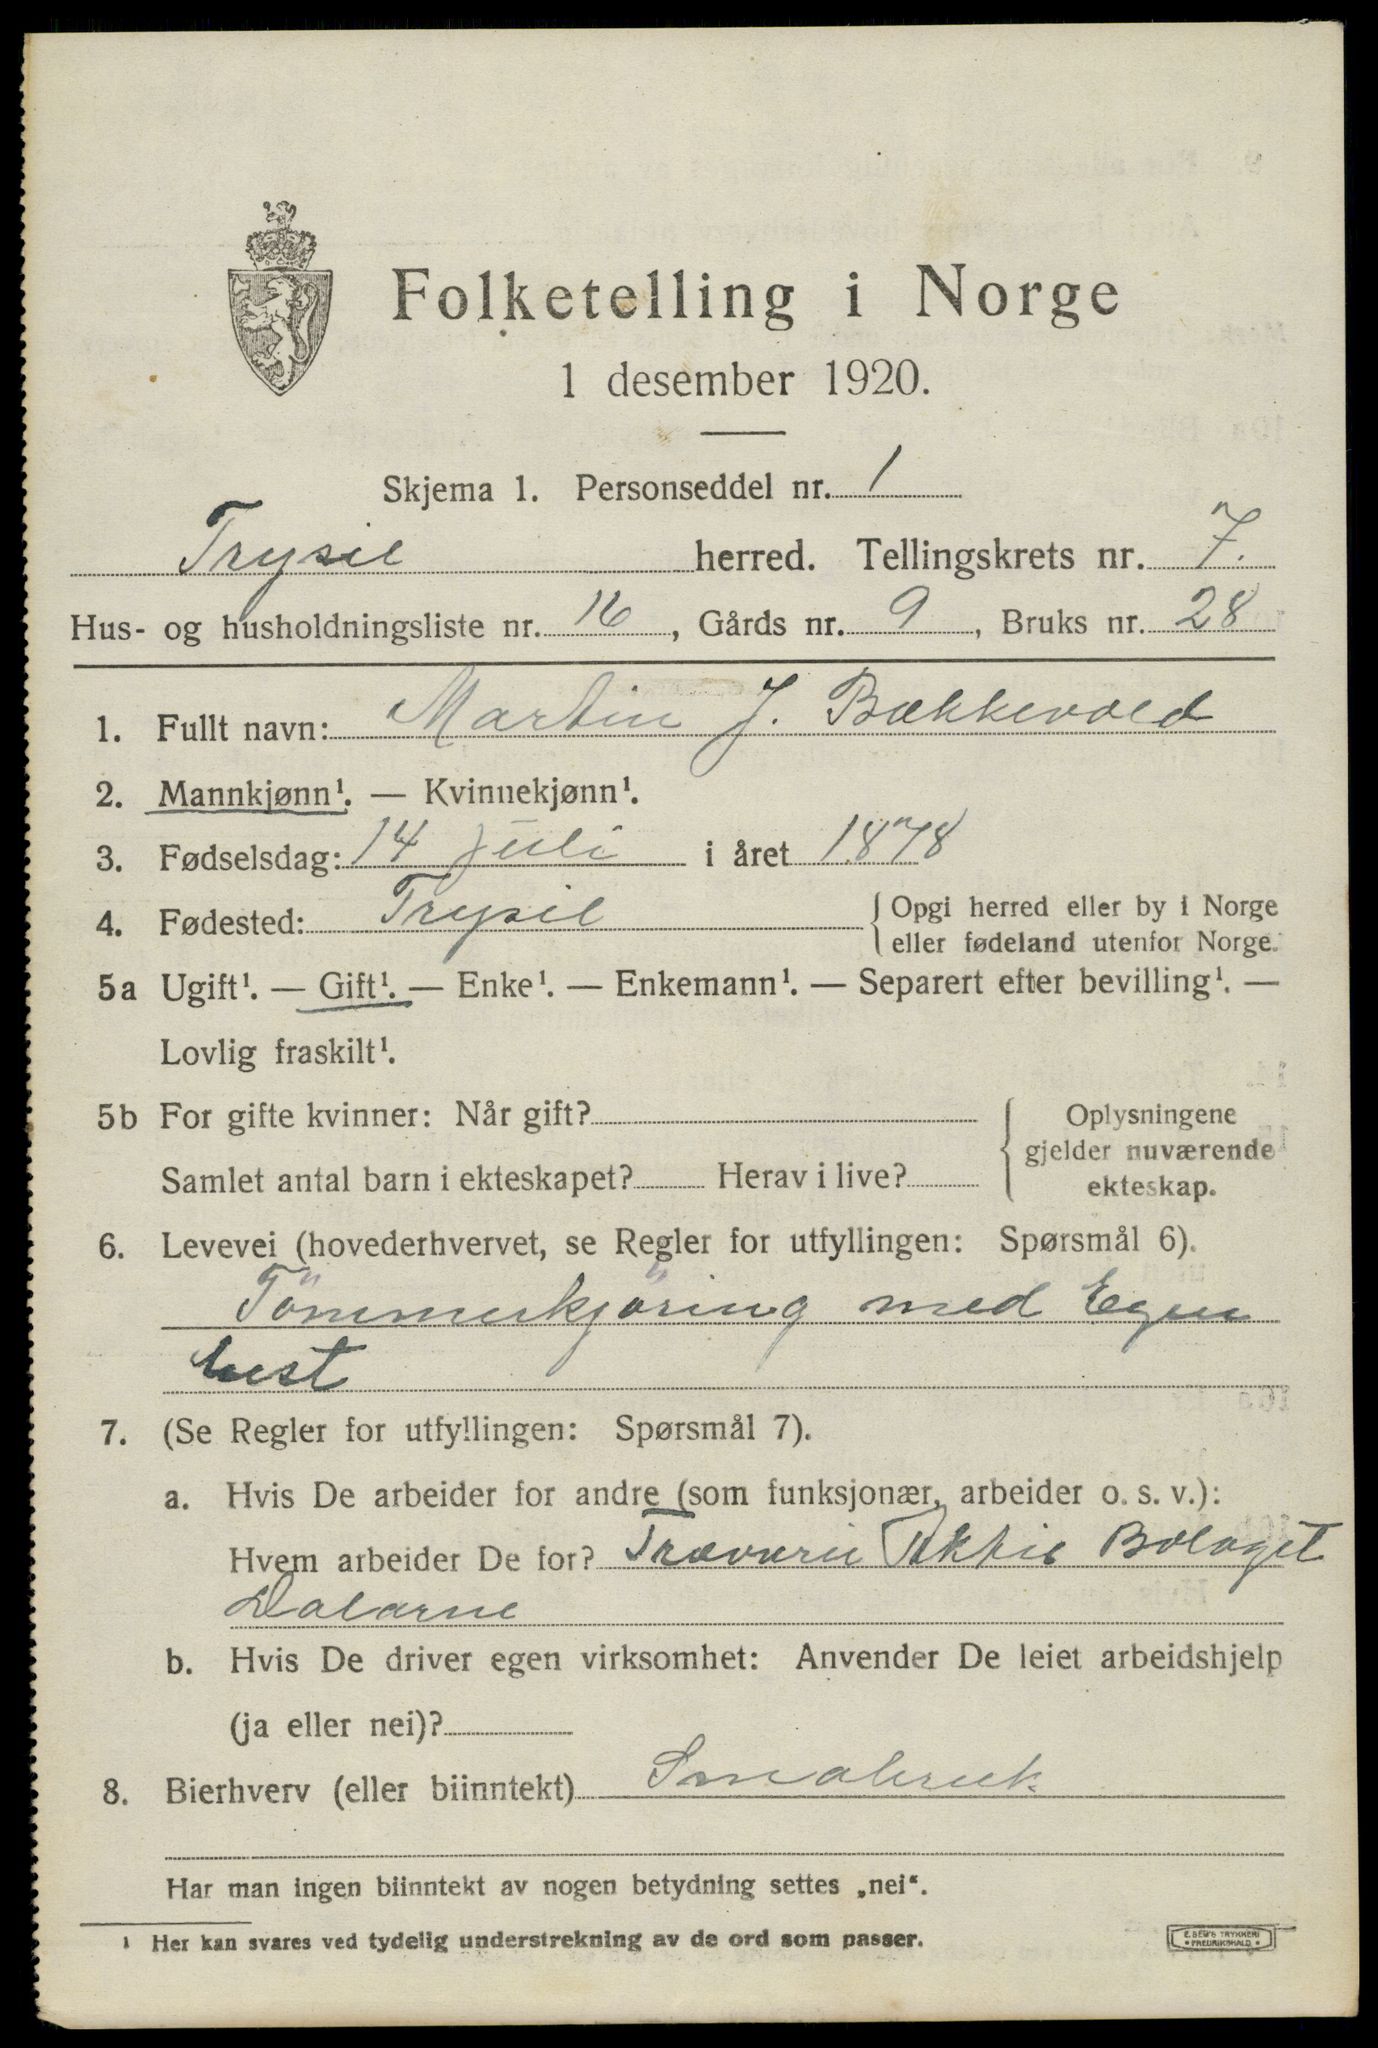 Folketelling i Norge
1 desember 1920.
Skjema 1. Personseddel nr. 1
Trysil herred. Tellingskrets nr. 7.
Hus- og husholdningsliste nr. 16, Gårds nr. 9, Bruks nr. 28
1. Fullt navn: Martin J. Bækkevold
2. Mannkjønn¹. — Kvinnekjønn¹.
3. Fødselsdag: 14 Juli i året 1878
4. Fødested: Trysil {Opgi herred eller by i Norge
eller fødeland utenfor Norge.
5a Ugift¹. — Gift¹. — Enke¹. — Enkemann¹. — Separert efter bevilling¹. —
Lovlig fraskilt¹.
5b For gifte kvinner: Når gift? {Oplysningene
gjelder nuværende
Samlet antal barn i ekteskapet? Herav i live?
ekteskap.
6. Levevei (hovederhvervet, se Regler for utfyllingen: Spørsmål 6).
Tömmerkjöring med Egen
hest
7. (Se Regler for utfyllingen: Spørsmål 7).
a. Hvis De arbeider for andre (som funksjonær, arbeider o. s. v.):
Hvem arbeider De for? Trævarie Aktie Bolaget
Dalarne
b. Hvis De driver egen virksomhet: Anvender De leiet arbeidshjelp
(ja eller nei)?
8. Bierhverv (eller biinntekt) Smabruk.
Har man ingen biinntekt av nogen betydning settes „nei“.
¹ Her kan svares ved tydelig understrekning av de ord som passer.
E. SEM'S TRYKKERI
• FREDRIKSHALD •